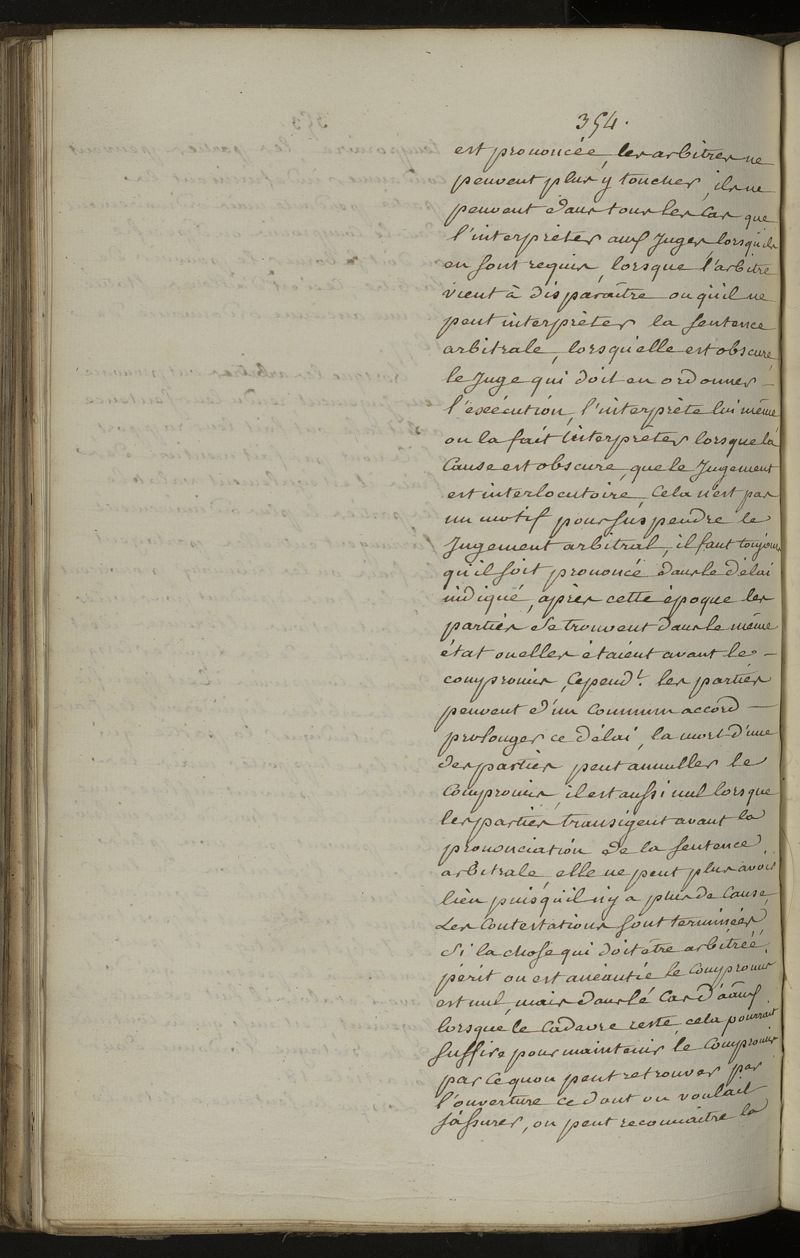 354.
est prononcée, les arbitres ne
peuvent plus y toucher, ils ne
peuvent dans tous les Cas que
l'interprèter aux Juges lorsqu'ils
en sont requis, lorsque l'arbitre
vient à disparaître ou qu'il ne
peut interprèter la sentence
arbitrale, lorsqu'elle est obscure,
le Juge qui doit en ordonner —
l'exécution, l'interprète lui même
ou la fait interpreter lorsque la
Cause est obscure, que le Jugement
est interlocutoire, Cela n'est pas
un motif pour suspendre le
Jugement arbitral, il faut toujours
qu'il soit prononcé dans le délai
indiqué, après cette époque les
parties se trouvent dans le même
état ou elles étaient avant le —
compromis, Cepend.t les parties
peuvent d'un Commun accord —
prolonger ce délai, la mort d'une
des parties peut annuller le
Compromis, il est aussi nul lorsque
les parties transigent avant la
prononciation de la sentence
arbitrale, elle ne peut plus avoir
lieu puisqu'il n'y a plus de Cause,
Les Contestations sont terminées,
Si la chose qui doit être arbitrée,
périt ou est anéantie le Compromis
est nul, mais dans le Cas
lorsque le Cadavre reste, cela pourrait
suffire pour maintenir le Compromis
par ce qu'on peut retrouver par
l'ouverture ce dont on voulait
s'assurer, on peut reconnaitre la